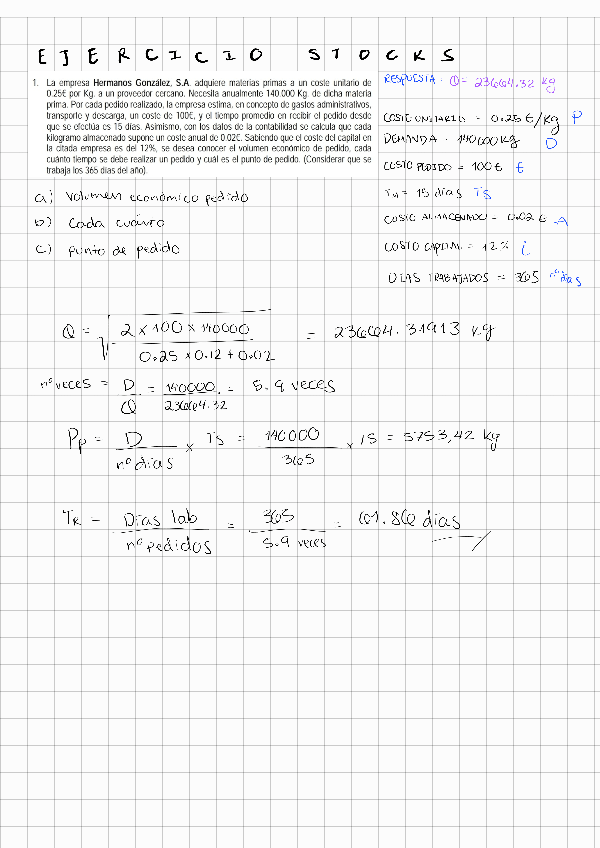 EJERCICIO STOCKS
1. La empresa Hermanos González, S.A. adquiere materias primas a un coste unitario de
0.25€ por Kg. a un proveedor cercano. Necesita anualmente 140.000 Kg. de dicha materia
prima. Por cada pedido realizado, la empresa estima, en concepto de gastos administrativos,
transporte y descarga, un coste de 100€, y el tiempo promedio en recibir el pedido desde
que se efectúa es 15 días. Asimismo, con los datos de la contabilidad se calcula que cada
kilogramo almacenado supone un coste anual de 0.02€. Sabiendo que el coste del capital en
la citada empresa es del 12%, se desea conocer el volumen económico de pedido, cada
cuánto tiempo se debe realizar un pedido y cuál es el punto de pedido. (Considerar que se
trabaja los 365 días del año).
RESPUESTA. Q = 23664.32 kg
COSTE UNITARIO = 0.25 €/kg P
DEMANDA = 140000 kg D
COSTO PEDIDO = 100 € E
= 15 días Ts
COSTO ALMACENADO = 0.02 € A
COSTO CAPITAL = 12% i
DIAS TRABAJADOS = 365 nº dias
a) Volumen económico pedido
b) Cada cuánto
c) punto de pedido
Q = √ 2 x 100 x 140000 = 23664.31913 kg
0.25 x 0.12 + 0.02
nº veces = D = 140000 = 5.9 veces
Q 23664.32
Pp = D x Ts = 140000 x 15 = 5753,42 kg
nº dias 365
TR = Dias lab = 365 = 61.86 dias
nº pedidos 5.9 veces